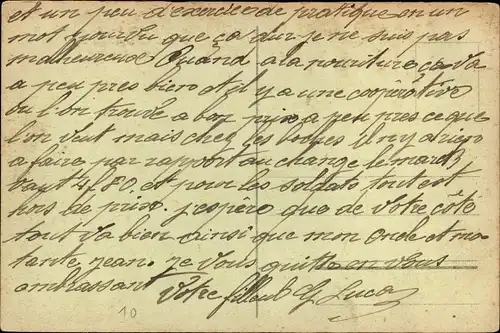 et un peu d'exercice de pratique en un
mot pourvu que ça dur je ne suis pas
malheureux Quand a la nourriture ça va
a peu pres bien et il y a une coopérative
ou l'on trouve a bon prix a peu pres ce que
l'on veut mais chez les boches il n'y a rien
a faire par rapport au change le mark
vaut 4f80. et pour les soldats tout est
hors de prix. j'espère que de Votre côté
tout va bien ainsi que mon Oncle et ma
tante jean. je vous quitte en vous
embrassant Votre filleul G Lucas
10